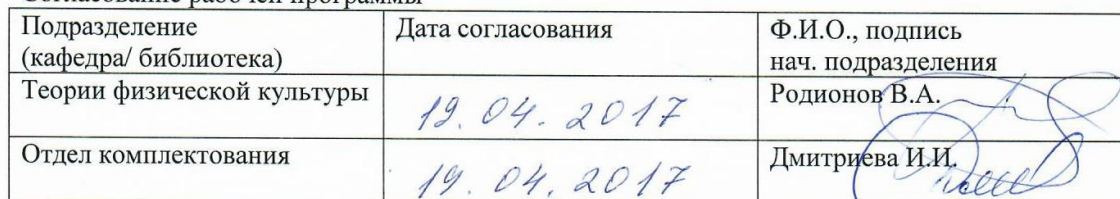 Согласование рабочей программы
Подразделение
(кафедра/ библиотека)
Дата согласования
Ф.И.О., подпись
нач. подразделения
Теории физической культуры
19.04.2017
Родионов В.А.
Отдел комплектования
19.04.2017
Дмитриева И.И.